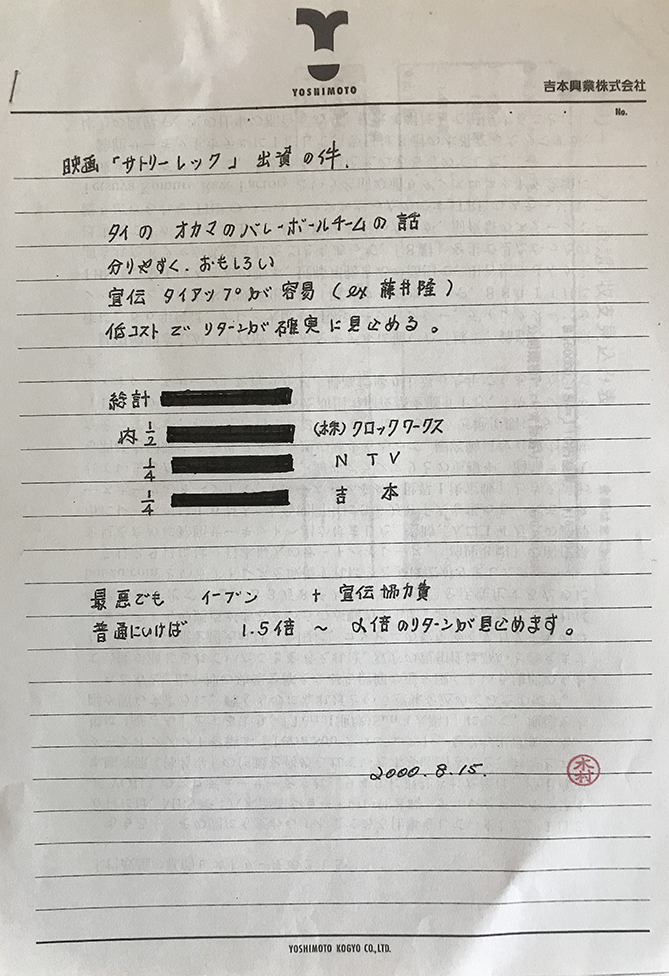 YOSHIMOTO
吉本興業株式会社
No.
映画「サトリーレック」出資の件.
タイの オカマのバレーボールチームの話
分りやすく.おもしろい
宣伝 タイアップが容易(ex 藤井隆)
低コストでリターンが確実に見込める。
総計
内 1/2 (株)クロックワークス
1/4 NTV
1/4 吉本
最悪でも イーブン + 宣伝協力費
普通にいけば 1.5倍 〜 α倍のリターンが見込めます。
2000.8.15.
木村
YOSHIMOTO KOGYO CO.,LTD.